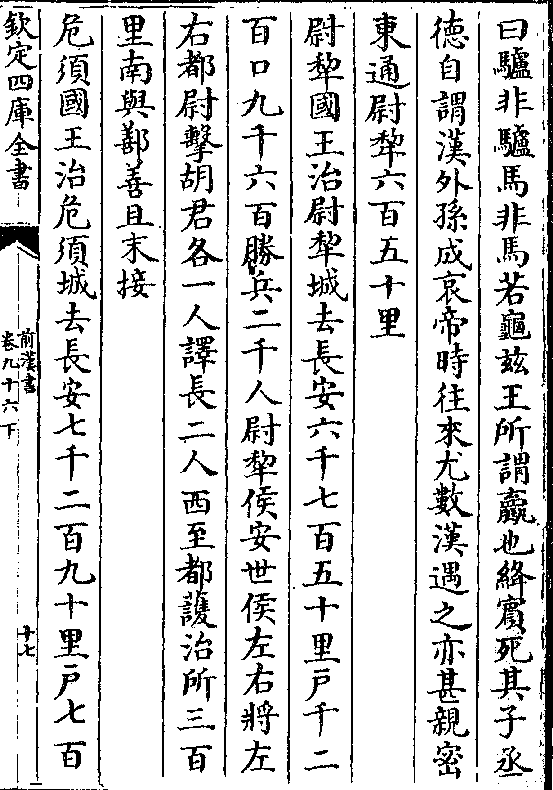 曰驢非驢馬非馬若龜兹王所謂驘也絳賓死其子丞
徳自謂漢外孫成哀帝時往來尤數漢遇之亦甚親密
東通尉犂六百五十里
尉犂國王治尉犂城去長安六千七百五十里戸千二
百口九千六百勝兵二千人尉犂侯安世侯左右將左
右都尉擊胡君各一人譯長二人西至都護治所三百
里南與鄯善且末接
危須國王治危須城去長安七千二百九十里戸七百
欽定四庫全書
前漢書
卷九十六下
十七